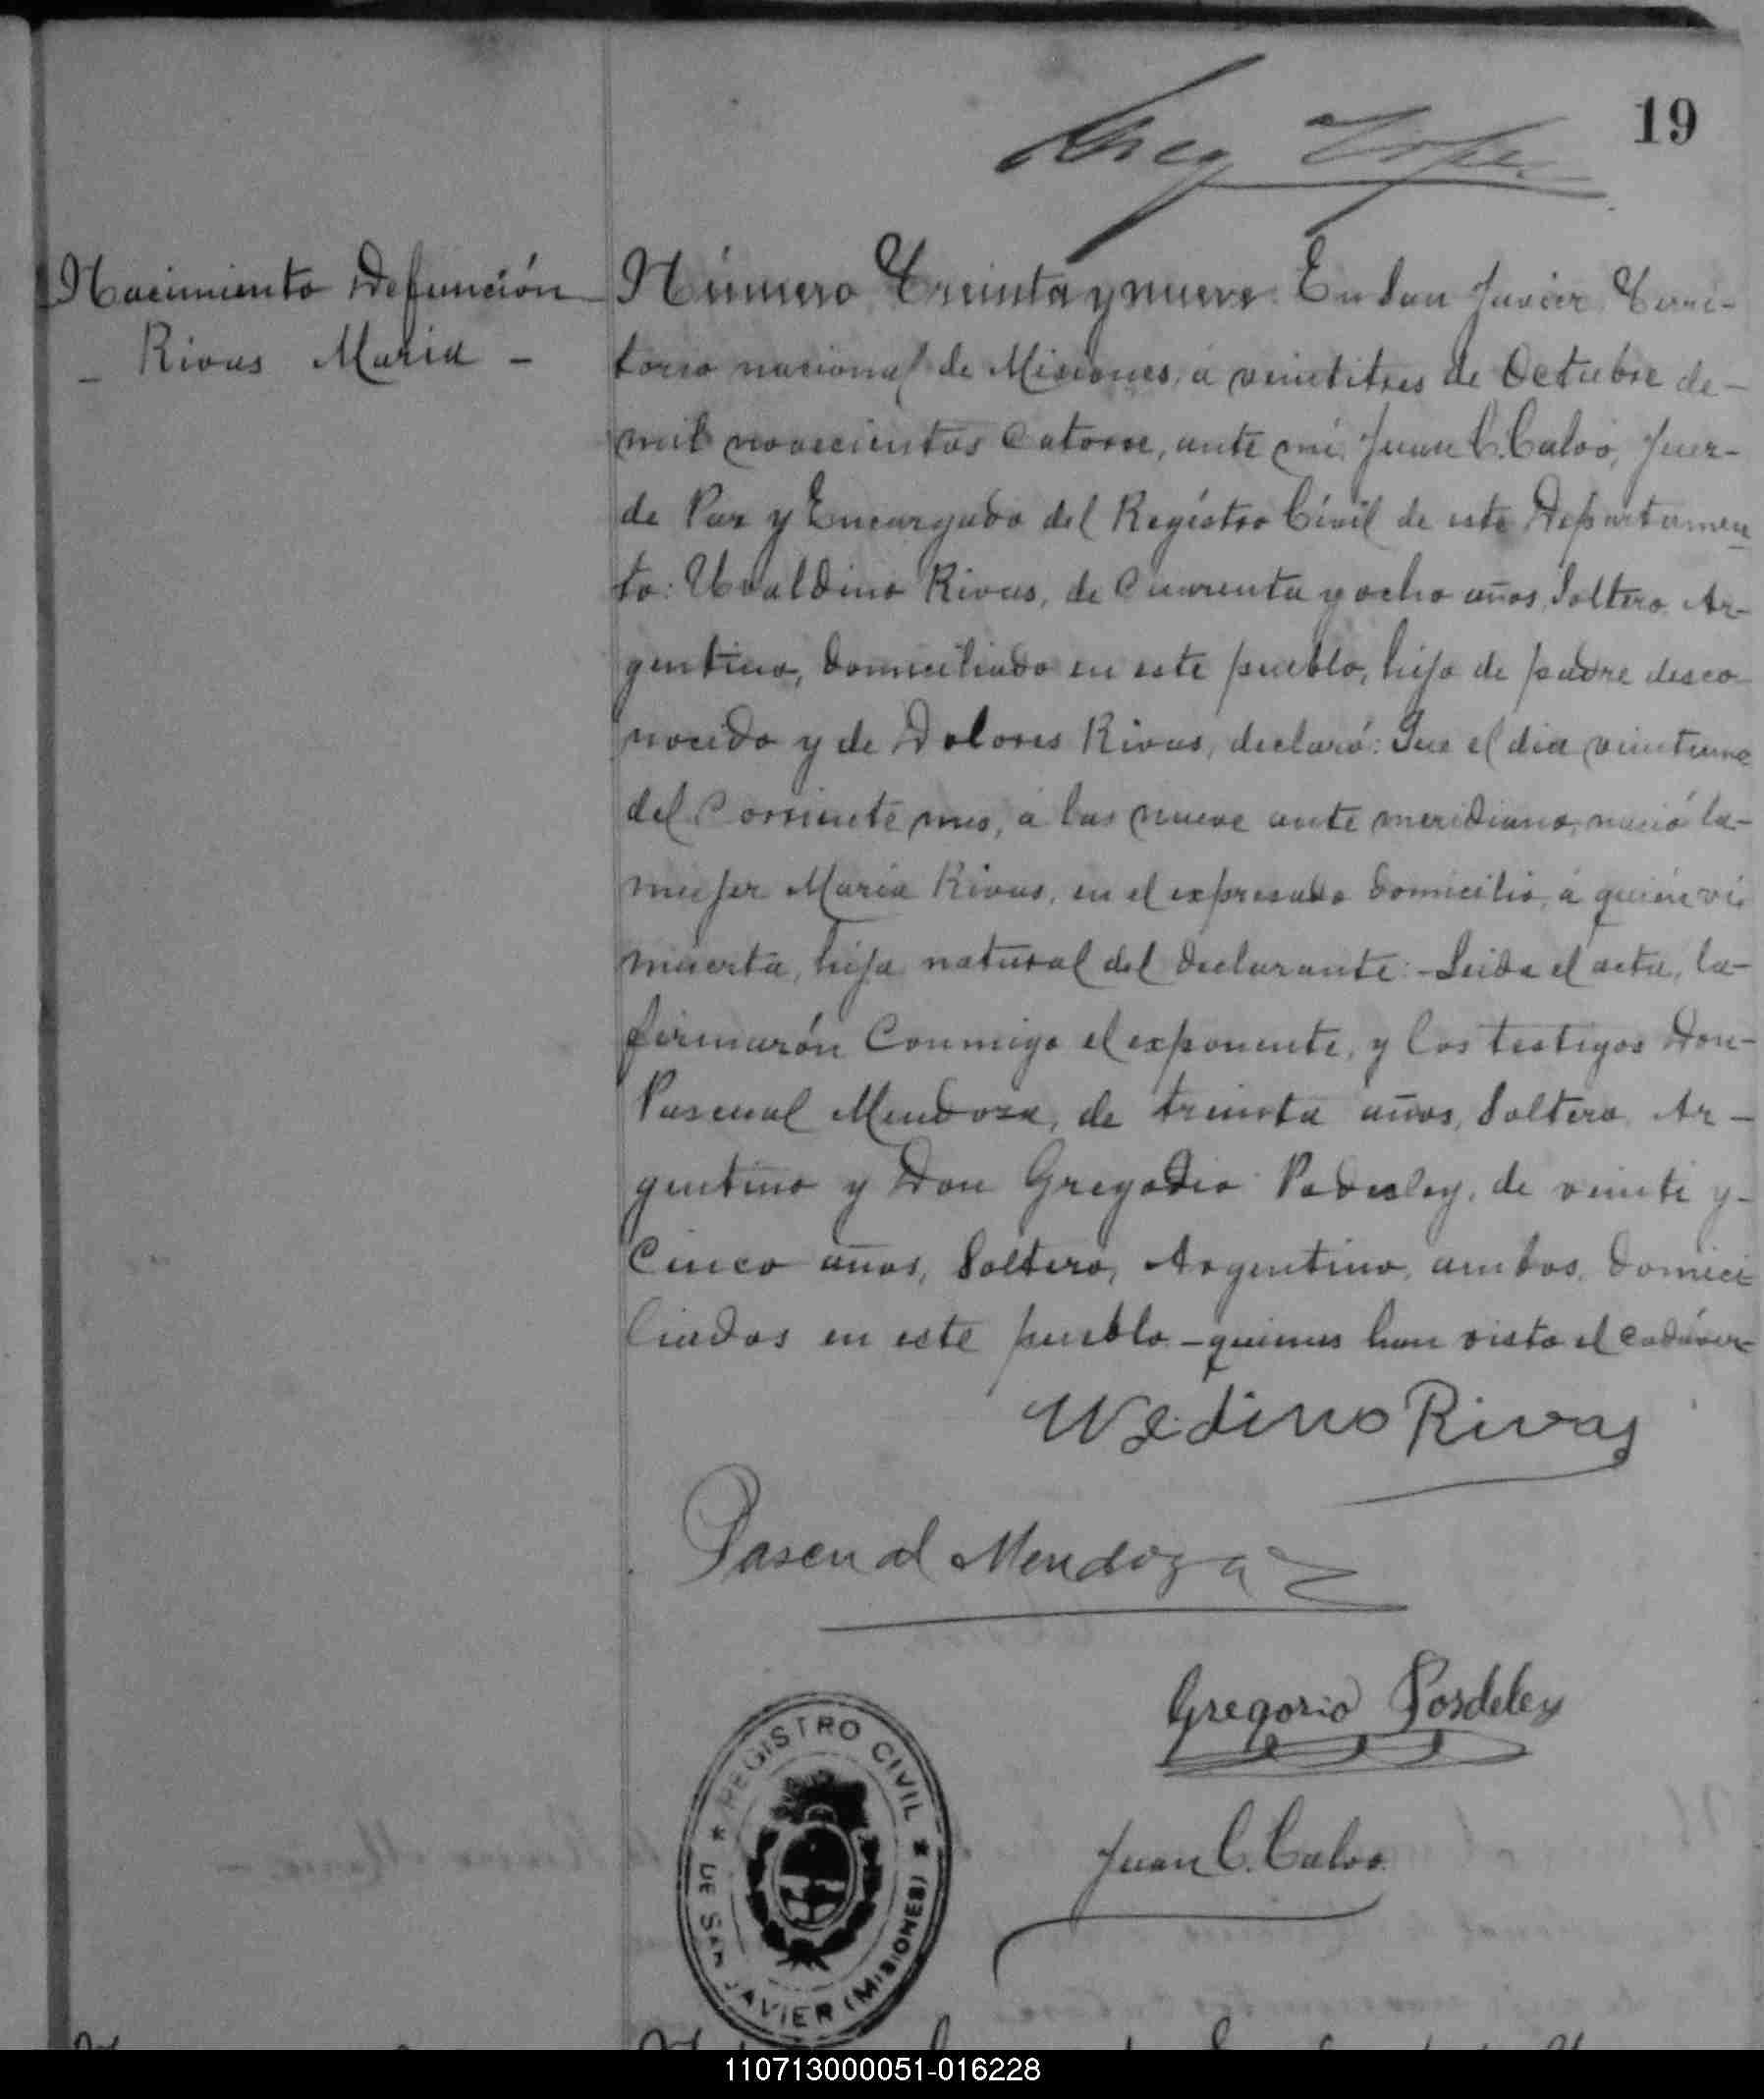 19
Nacimiento Defunción
- Rivas María -
Número Treinta y nueve. En San Javier, Terri-
torio nacional de Misiones, á veintitres de Octubre de-
mil novecientos Catorce, ante mí Juan C. Calvo, Juez-
de Paz y Encargado del Registro Civil de este Departamen
to: Uvaldino Rivas, de Cuarenta y ocho años, Soltero, Ar-
gentino, domiciliado en este pueblo, hijo de padre desco-
nocido y de Dolores Rivas, declaró: Que el día veintiuno
del Corriente mes, á las nueve ante meridiano, nació la-
mujer María Rivas, en el expresado domicilio, á quién ví
muerta, hija natural del declarante:- Leida el acta, la-
firmarón Conmigo el exponente, y los testigos Don-
Pascual Mendoza, de treinta años, Soltero, Ar-
gentino y Don Gregodio de veinti y-
Cinco años, Soltero, Argentino, ambos domici
liados en este pueblo - quienes han visto el Cadáver-
Rivas
Pascual Mendoza
Gregorio Posdeley
Juan C. Calvo
REGISTRO CIVIL
DE SAN JAVIER (MISIONES)
110713000051-016228